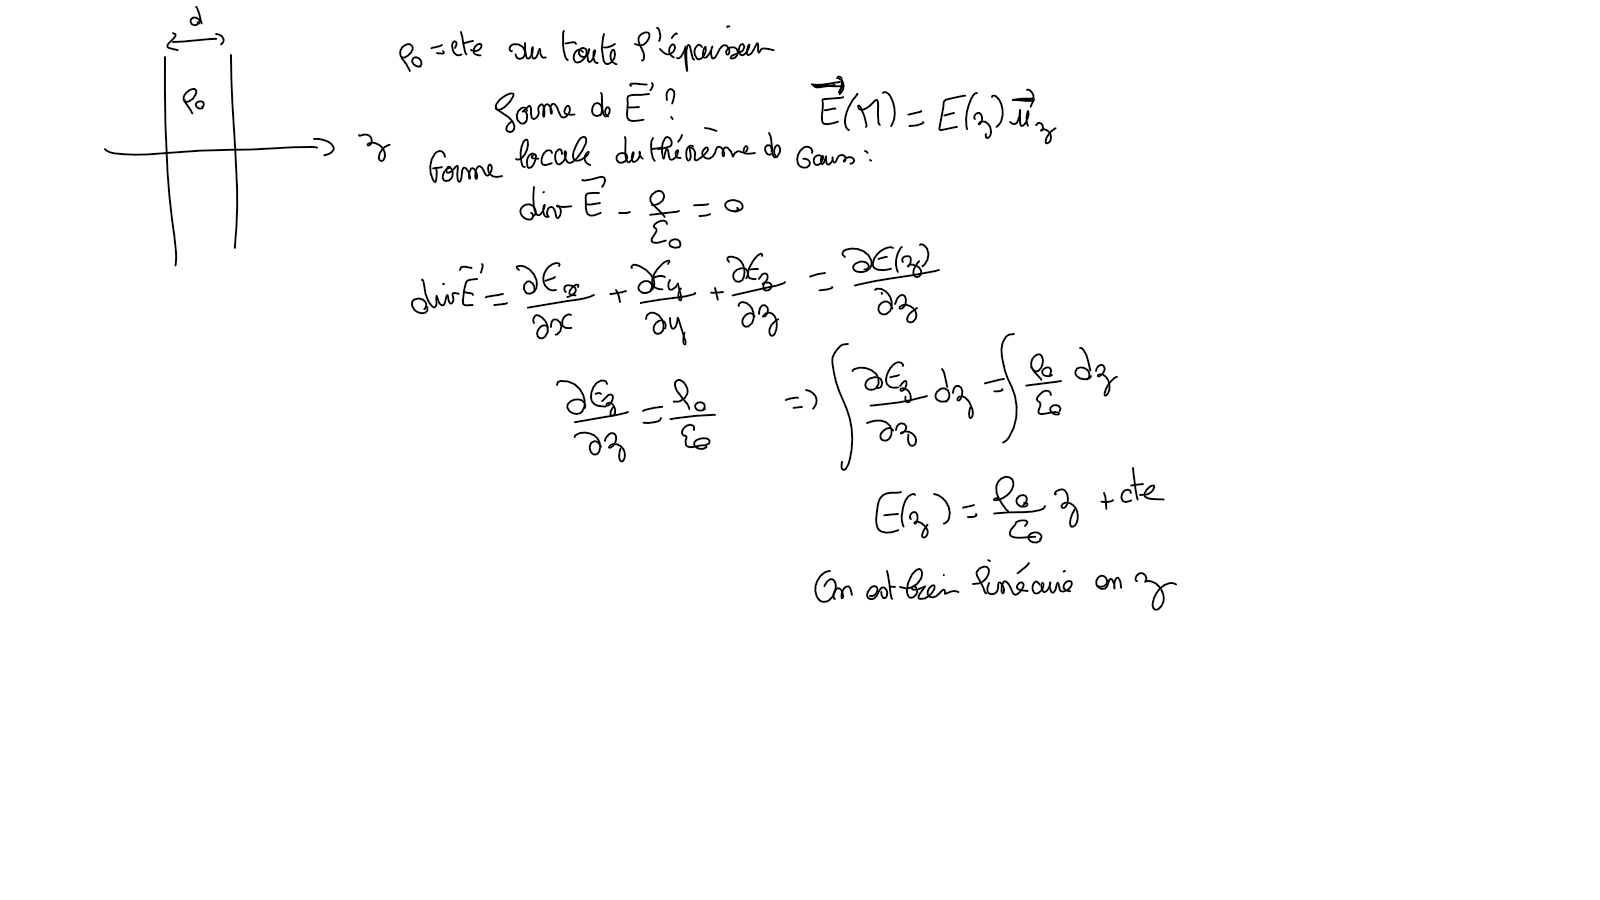 d
ρ₀ = cte sur toute l'épaisseur
ρ₀
forme de E⃗ ? E⃗(M) = E(z) u⃗z
z
Forme locale du théorème de Gauss :
div E⃗ - ρ/ε₀ = 0
div E⃗ = ∂Ex/∂x + ∂Ey/∂y + ∂Ez/∂z = ∂E(z)/∂z
∂Ez/∂z = ρ₀/ε₀ => ∫ ∂Ez/∂z dz = ∫ ρ₀/ε₀ dz
E(z) = ρ₀/ε₀ z + cte
On est bien linéaire en z